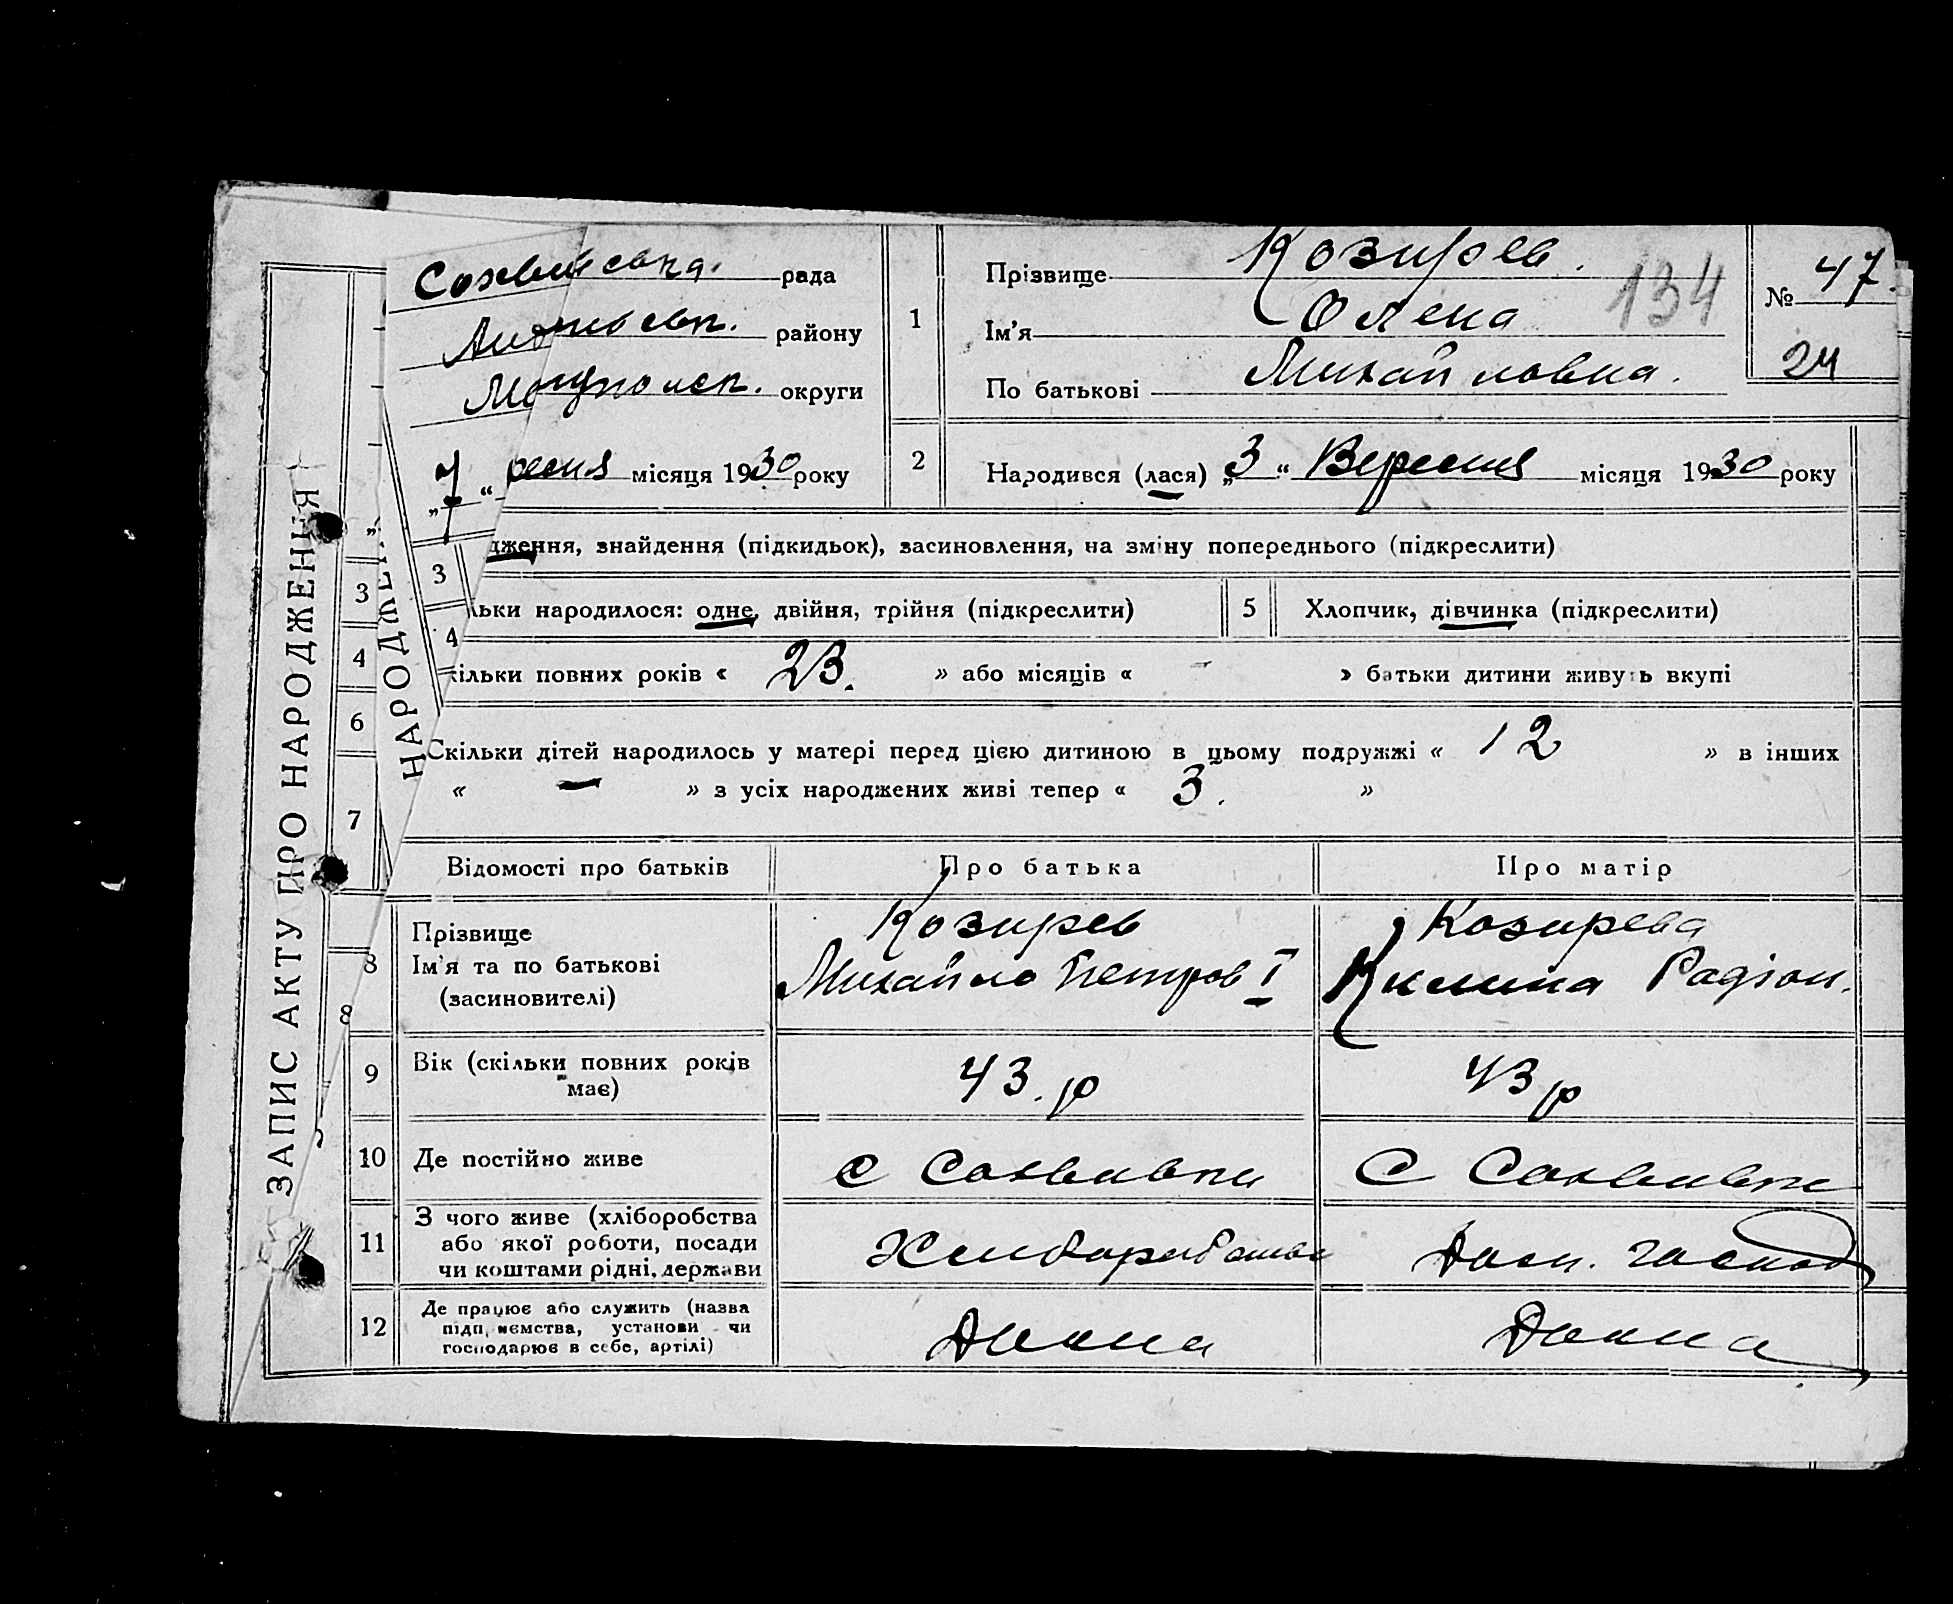 ЗАПИС АКТУ ПРО НАРОДЖЕННЯ
НАРОДЖЕ
рада
району
округи
7 " есня місяця 1930 року
1
Прізвище Козирев.
Ім'я Олена
По батькові Михайловна.
134
№ 47.
24
2
Народився (лася) „3" Вересня місяця 1930 року
3
дження, знайдення (підкидьок), засиновлення, на зміну попереднього (підкреслити)
4
льки народилося: одне, двійня, трійня (підкреслити)
5
Хлопчик, дівчинка (підкреслити)
6
кільки повних років « 23. » або місяців « — » батьки дитини живуть вкупі
7
Скільки дітей народилось у матері перед цією дитиною в цьому подружжі « 12 » в інших
« — » з усіх народжених живі тепер « 3. »
Відомості про батьків
Про батька
Про матір
8
Прізвище
Ім'я та по батькові
(засиновителі)
Козирев
Михайло Петров I
Козирева
Килина Радіон.
9
Вік (скільки повних років
має)
43. р
43 р
10
Де постійно живе
с
с
11
З чого живе (хліборобства
або якої роботи, посади
чи коштами рідні, держави
Дом. господ
12
Де працює або служить (назва
підприємства, установи чи
господарює в себе, артілі)
Дома
Дома